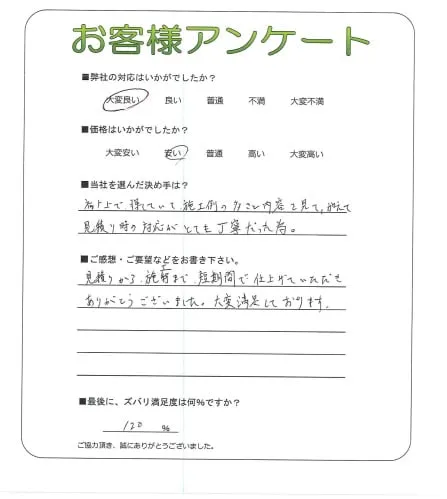 お客様アンケート
■弊社の対応はいかがでしたか？
大変良い 良い 普通 不満 大変不満
■価格はいかがでしたか？
大変安い 安い 普通 高い 大変高い
■当社を選んだ決め手は？
上で探していて、施工例の多さと内容を見て、加えて
見積り時の対応がとても丁寧だった為。
■ご感想・ご要望などをお書き下さい。
見積りから、施工まで、短期間で仕上げていただき
ありがとうございました。大変満足しております。
■最後に、ズバリ満足度は何％ですか？
120 ％
ご協力頂き、誠にありがとうございました。